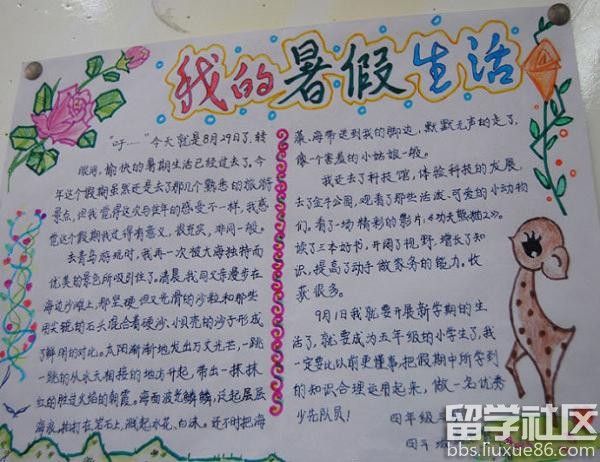 我的暑假生活
"吁……"今天就是8月29日了,转
眼间,愉快的暑期生活已经过去了,今
年这个假期虽然还是去了那几个熟悉的旅游
景点,但我觉得这次与往年的感受不一样,我感
觉这个假期我过得有意义,很充实,非同一般。
去青岛游玩时,我再一次被大海独特而
优美的景色所吸引住了。清晨,我同父母漫步在
海边沙滩上,那坚硬但又光滑的沙粒和那些
用尖锐的石头混合着硬沙、小贝壳的沙子形成
了鲜明的对比。太阳渐渐地发出万丈光芒,一跳
一跳的从水天相接的地方升起,带出一抹抹
红的胜过火焰的朝霞。海面波光鳞鳞,泛起层层
海浪,拍打在岩石上,溅起水花、白沫。还不时把海
藻、海带送到我的脚边,默默无声的走了,
像一个害羞的小姑娘一般。
我还去了科技馆,体验科技的发展,
去了金牛公园,观看了那些活泼、可爱的小动物
们。看了一场精彩的影片:《功夫熊猫2》。
读了三本好书,开阔了视野,增长了知
识,提高了动手做家务的能力。收
获很多。
9月1日我就要开展新学期的生
活了,就要成为五年级的小学生了,我
一定要比以前更懂事,把假期中所学到
的知识合理运用起来,做一名优秀
少先队员!
四年级
留学社区
bbs.liuxue86.com